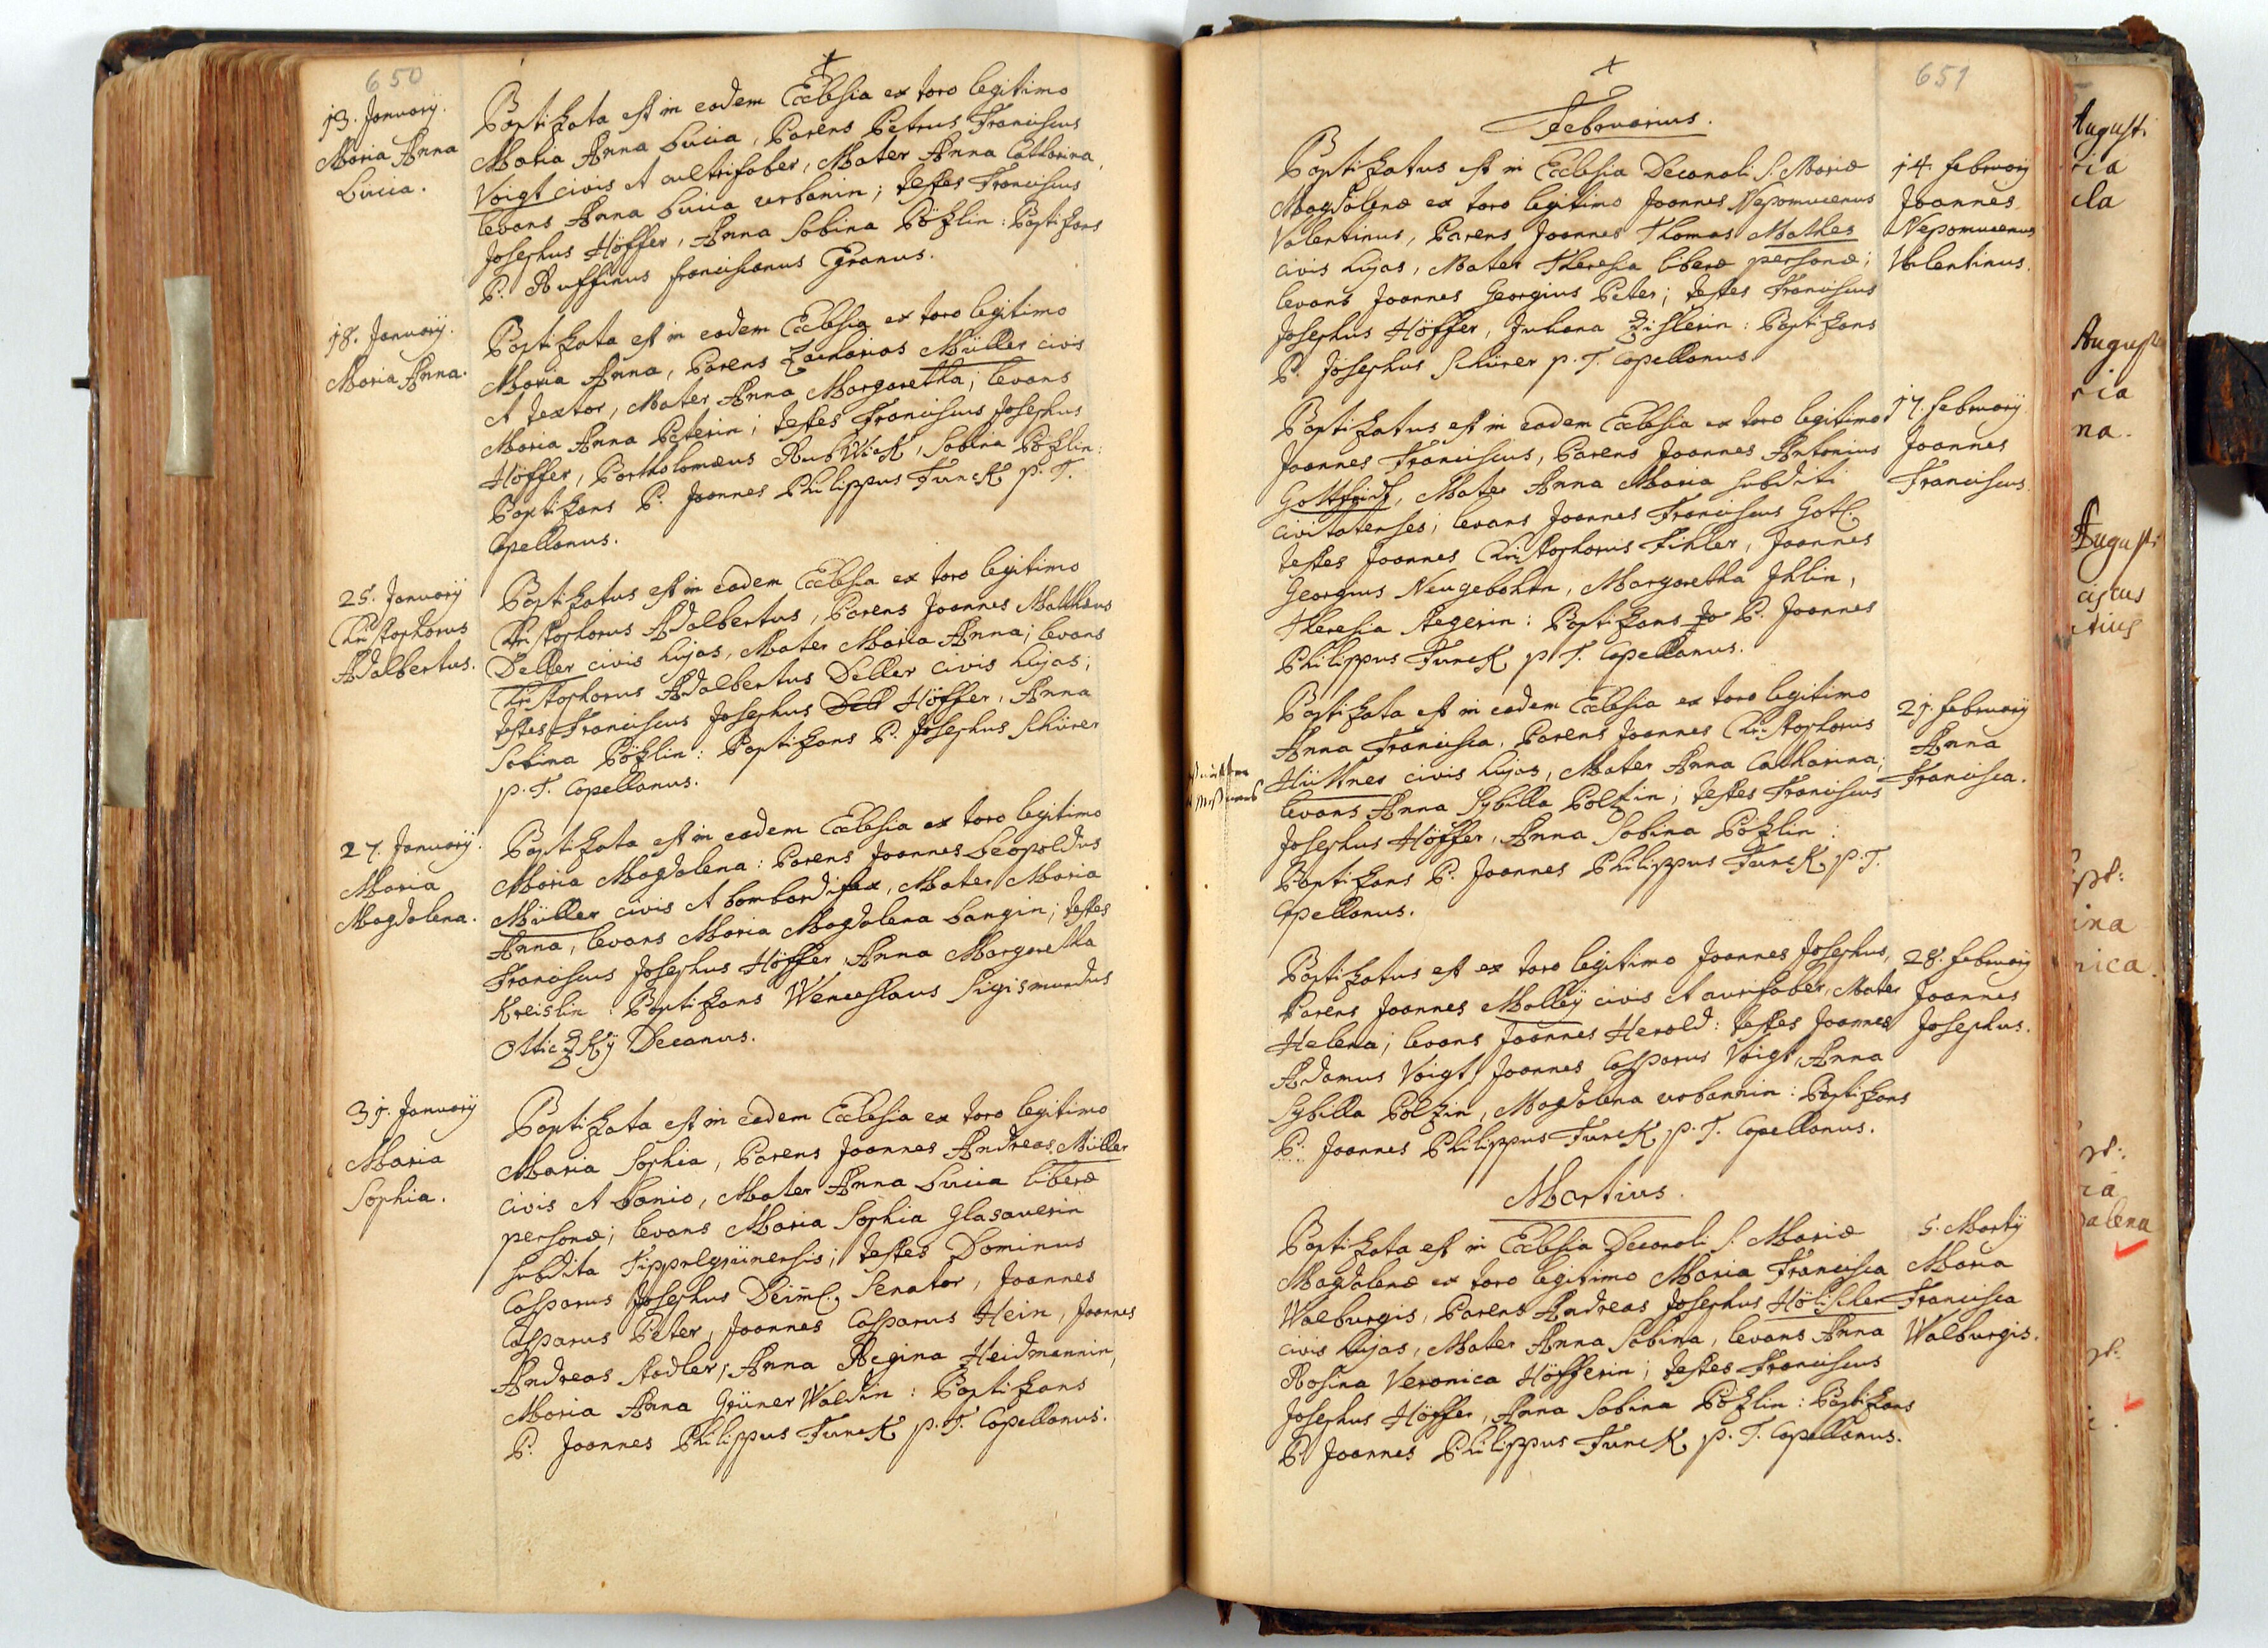 650
13. Januarij.
Maria Anna
Lucia.
Baptizata est in eadem Ecclesia ex toro legitimo
Maria Anna Lucia, Parens Petrus Franciscus
Voigt civis et cultrifaber, Mater Anna Catharina,
levans Anna Lucia urbanin; testes Franciscus
Josephus Höffer, Anna Sabina Pözlin: Baptizans
P. Ruffinus franciscanus Egranus.
18. Januarij.
Maria Anna.
Baptizata est in eadem Ecclesia ex toro legitimo
Maria Anna, Parens Zacharias Müller civis
et textor, Mater Anna Margaretha; levans
Maria Anna Peterin; testes Franciscus Josephus
Höffer, Bartholomæus RubWick, Sabina Pözlin:
Baptizans P. Joannes Philippus Funck p. T.
Capellanus.
25. Januarij
Christophorus
Adalbertus.
Baptizatus est in eadem Ecclesia ex toro legitimo
Christophorus Adalbertus, Parens Joannes Matthæus
Deller civis hujas, Mater Maria Anna; levans
Christophorus Adalbertus Deller civis hujas;
testes Franciscus Josephus Dell Höffer, Anna
Sabina Pözlin: Baptizans P. Josephus Schürer
p. T. Capellanus.
27. Januarij.
Maria
Magdalena.
Baptizata est in eadem Ecclesia ex toro legitimo
Maria Magdalena: Parens Joannes Leopoldus
Müller civis et bombardifex, Mater Maria
Anna, levans Maria Magdalena Langin; testes
Franciscus Josephus Höffer, Anna Margaretha
Kreislin: Baptizans Wenceslaus Sigismundus
OtticzKÿ Decanus.
31. Januarij
Maria
Sophia.
Baptizata est in eadem Ecclesia ex toro legitimo
Maria Sophia, Parens Joannes Andreas Müller
civis et Lanio, Mater Anna Lucia liberæ
personæ; levans Maria Sophia Glasauerin
subdita Tippelgrünensis; testes Dominus
Casparus Josephus Deiml. Senator, Joannes
Casparus Peter, Joannes Casparus Hein, Joannes
Andreas Stadler, Anna Regina Heidmannin,
Maria Anna GrünerWaldin: Baptizans
P. Joannes Philippus Funck p. T. Capellanus.
651
Februarius.
Baptizatus est in Ecclesia Decanali S. Mariæ
Magdalenæ ex toro legitimo Joannes Nepomucenus
Valentinus, Parens Joannes Thomas Mathes
civis hujas, Mater Theresia liberæ personæ;
levans Joannes Georgius Peter; testes Franciscus
Josephus Höffer, Juliana Zislerin: Baptizans
P. Josephus Schürer p. T. Capellanus.
14. februarij
Joannes
Nepomucenus
Valentinus.
Baptizatus est in eadem Ecclesia ex toro legitimo
Joannes Franciscus, Parens Joannes Antonius
Gottfridt, Mater Anna Maria subditi
civitatenses; levans Joannes Franciscus Gotl.
testes Joannes Christophorus Fihler, Joannes
Georgius Neugebohrn, Margaretha Ihlin,
Theresia Stegerin: Baptizans Jo P. Joannes
Philippus Funck p. T. Capellanus.
17. februarij.
Joannes
Franciscus.
Baptizata est in eadem Ecclesia ex toro legitimo
Anna Francisca, Parens Joannes Christophorus
Hüttner civis hujas, Mater Anna Catharina;
levans Anna Sybilla Polzin; testes Franciscus
Josephus Höffer, Anna Sabina Pözlin:
Baptizans P. Joannes Philippus Funck p. T.
Capellanus.
21. februarij
Anna
Francisca.
Baptizatus est ex toro legitimo Joannes Josephus,
Parens Joannes Malleÿ civis et aurifaber, Mater
Helena; levans Joannes Herold: testes Joannes
Adamus Voigt, Joannes Casparus Voigt, Anna
Sybilla Polzin, Magdalena urbannin: Baptizans
P. Joannes Philippus Funck p. T. Capellanus.
28. februarij
Joannes
Josephus.
Martius.
Baptizata est in Ecclesia Decanali S. Mariæ
Magdalenæ ex toro legitimo Maria Francisca
Walburgis, Parens Andreas Josephus Hölischer
civis hujas, Mater Anna Sabina, levans Anna
Rosina Veronica Höfferin; testes Franciscus
Josephus Höffer, Anna Sabina Pözlin: Baptizans
P. Joannes Philippus Funck p. T. Capellanus.
5. Martij
Maria
Francisca
Walburgis.